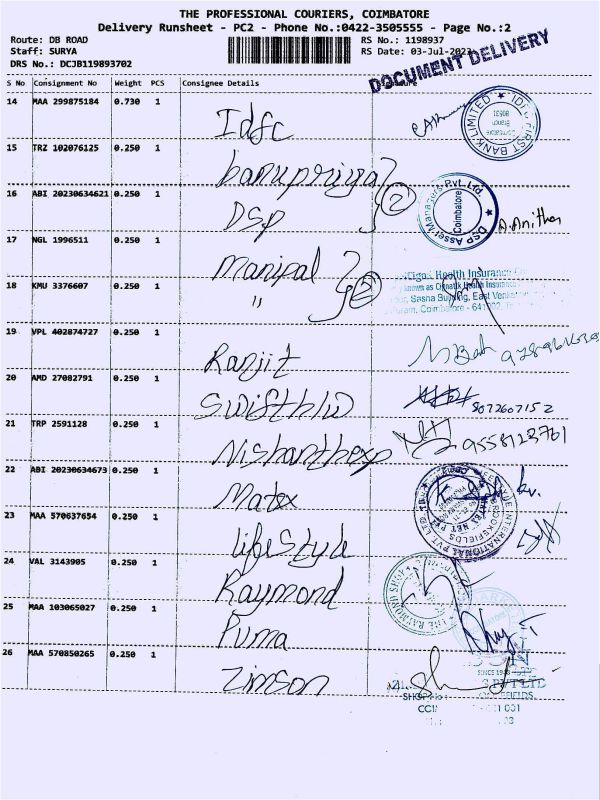 THE PROFESSIONAL COURIERS, COIMBATORE
Delivery Runsheet - PC2 - Phone No.:0422-3505555 - Page No.:2
Route: DB ROAD
Staff: SURYA
DRS No.: DCJB119893702
RS No.: 1198937
RS Date: 03-Jul-2023
DOCUMENT DELIVERY
S No Consignment No Weight PCS Consignee Details
14 MAA 299875184 0.730 1 Idfc
IDFC FIRST BANK LIMITED
Coimbatore
Branch
15 TRZ 102076125 0.250 1 banupriya
16 ABI 20230634621 0.250 1 DSP 2
DSP Asset Managers Pvt. Ltd.
Coimbatore
A.Anitha
17 NGL 1996511 0.250 1 Manipal
18 KMU 3376607 0.250 1 " 2
Health Insurance
known as Health Insurance
Sasna Building, East
Coimbatore - 641
19 VPL 402874727 0.250 1 Ranjit
20 AMD 27082791 0.250 1 Swisthlid
8072607152
21 TRP 2591128 0.250 1 Nishanthexp
9558123701
22 ABI 20230634673 0.250 1 Matex
23 MAA 570637654 0.250 1 lifestyle
INTERNATIONAL PVT LTD
BROOKEFIELDS
24 VAL 3143905 0.250 1 Raymond
THE RAYMOND SHOP
25 MAA 103065027 0.250 1 Puma
26 MAA 570850265 0.250 1 Zimson
SINCE 1948
PVT LTD
SHOP No